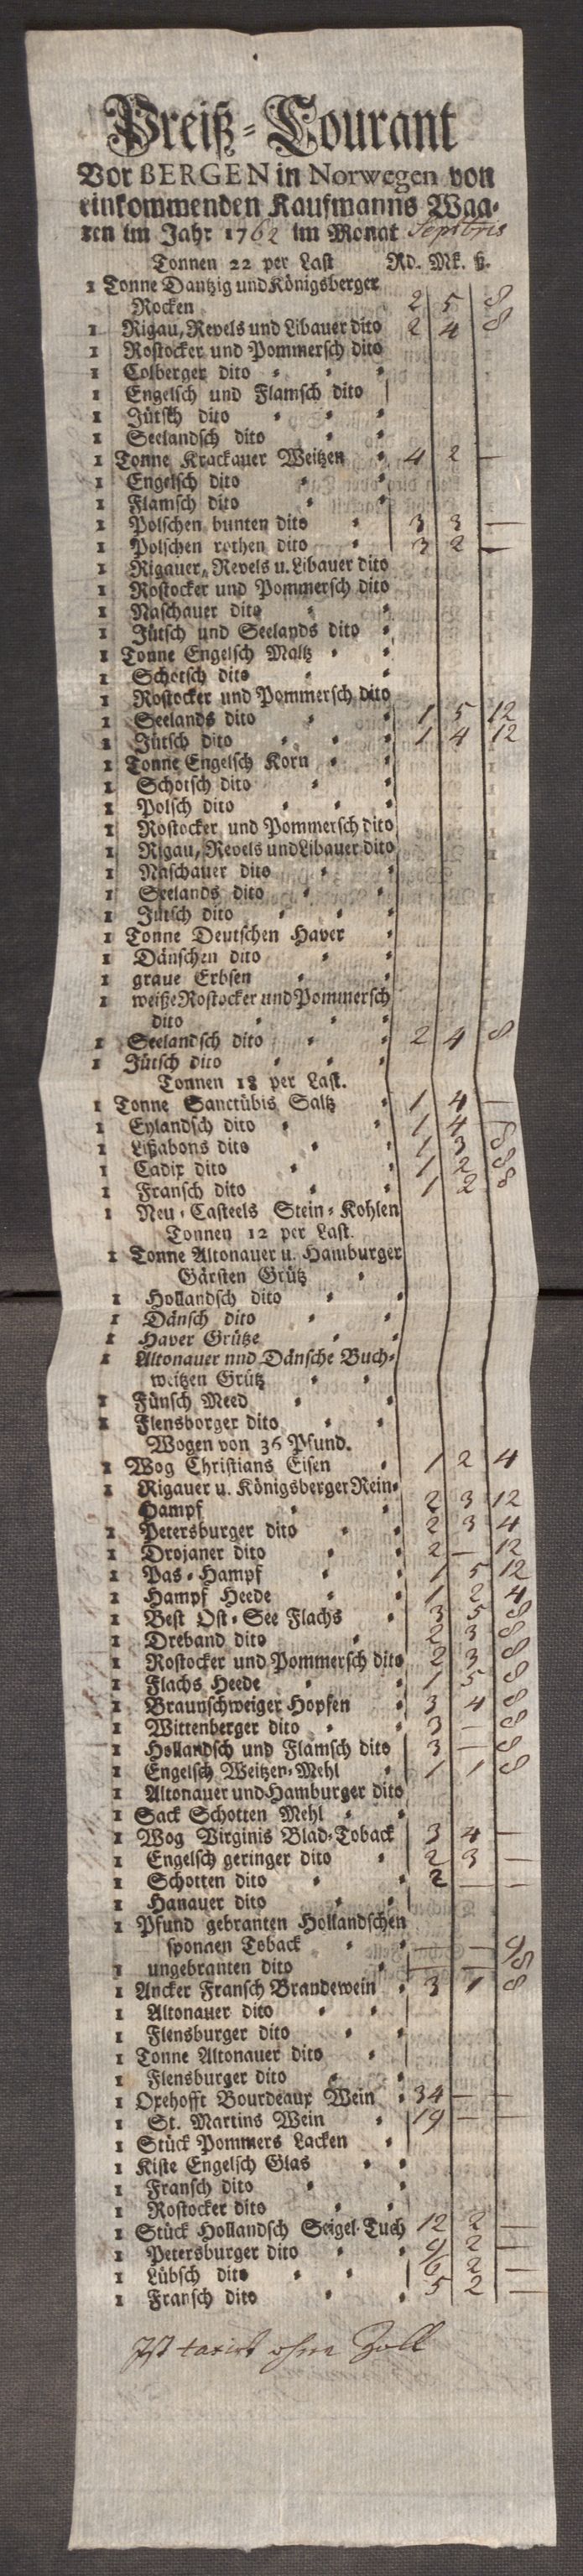 Preiß-Courant
Vor BERGEN in Norwegen von
einkommenden Kaufmanns Waa-
ren im Jahr 1762 im Monat Septbris
Tonnen 22 per Last Rd. Mk. ß.
1 Tonne Dantzig und Königsberger
Rocken 2 5 8
1 Rigau, Revels und Libauer dito 2 4 8
1 Rostocker und Pommersch dito
1 Colberger dito
1 Engelsch und Flamsch dito
1 Jütsch dito
1 Seelandsch dito
1 Tonne Krackauer Weitzen 4 2 —
1 Engelsch dito
1 Flamsch dito
1 Polschen bunten dito 3 3 —
1 Polschen rothen dito 3 2 —
1 Rigauer, Revels u. Libauer dito
1 Rostocker und Pommersch dito
1 Naschauer dito
1 Jütsch und Seelands dito
1 Tonne Engelsch Maltz
1 Schotsch dito
1 Rostocker und Pommersch dito
1 Seelands dito 1 5 12
1 Jütsch dito 1 4 12
1 Tonne Engelsch Korn
1 Schotsch dito
1 Polsch dito
1 Rostocker und Pommersch dito
1 Rigau, Revels und Libauer dito
1 Naschauer dito
1 Seelands dito
1 Jütsch dito
1 Tonne Deutschen Haver
1 Dänschen dito
1 graue Erbsen
1 weiße Rostocker und Pommersch
dito
1 Seelandsch dito 2 4 8
1 Jütsch dito
Tonnen 18 per Last.
1 Tonne Sanctübis Saltz 1 4 —
1 Eylandsch dito 1 4
1 Lißabons dito 1 3 8
1 Cadix dito 1 2 8
1 Fransch dito 1 2 8
1 Neu-Casteels Stein-Kohlen
Tonnen 12 per Last.
1 Tonne Altonauer u. Hamburger
Gärsten Grütz
1 Hollandsch dito
1 Dänsch dito
1 Haver Grütze
1 Altonauer nnd Dänsche Buch-
weitzen Grütz
1 Fünsch Meed
1 Flensborger dito
Wogen von 36 Pfund.
1 Wog Christians Eisen 1 2 4
1 Rigauer u. Königsberger Rein-
Hampf 2 3 12
1 Petersburger dito 2 3 4
1 Drojaner dito 2 — 12
1 Pas-Hampf 1 5 12
1 Hampf Heede 1 2 4
1 Best Ost-See Flachs 3 5 8
1 Dreband dito 2 3 8
1 Rostocker und Pommersch dito 2 3 8
1 Flachs Heede 1 5 8
1 Braunschweiger Hopfen 3 4 8
1 Wittenberger dito 3 — 8
1 Hollandsch und Flamsch dito 3 — 8
1 Engelsch Weitzen-Mehl 1 1 8
1 Altonauer und Hamburger dito
1 Sack Schotten Mehl
1 Wog Virginis Blad-Toback 3 4 —
1 Engelsch geringer dito 2 3 —
1 Schotten dito 2 — —
1 Hanauer dito
1 Pfund gebranten Hollandschen
sponnen Toback — —
1 ungebranten dito — —
1 Ancker Fransch Brandewein 3 1 8
1 Altonauer dito
1 Flensburger dito
1 Tonne Altonauer dito
1 Flensburger dito
1 Oxehofft Bourdeaux Wein 34 — —
1 St. Martins Wein 19 — —
1 Stück Pommers Lacken
1 Kiste Engelsch Glas
1 Fransch dito
1 Rostocker dito
1 Stück Hollandsch Seigel-Tuch 12 2 —
1 Petersburger dito 9 2 —
1 Lübsch dito 6 2 —
1 Fransch dito 5 2 —
Ist taxirt ohne Zoll